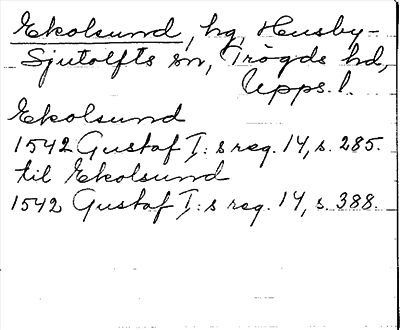 Ekolsund, hg, Husby-
Sjutolfts sn, Trögds hd,
Upps. l.
Ekolsund
1542 Gustaf I:s reg. 14, s. 285.
til Ekolsund
1542 Gustaf I:s reg. 14, s. 388.